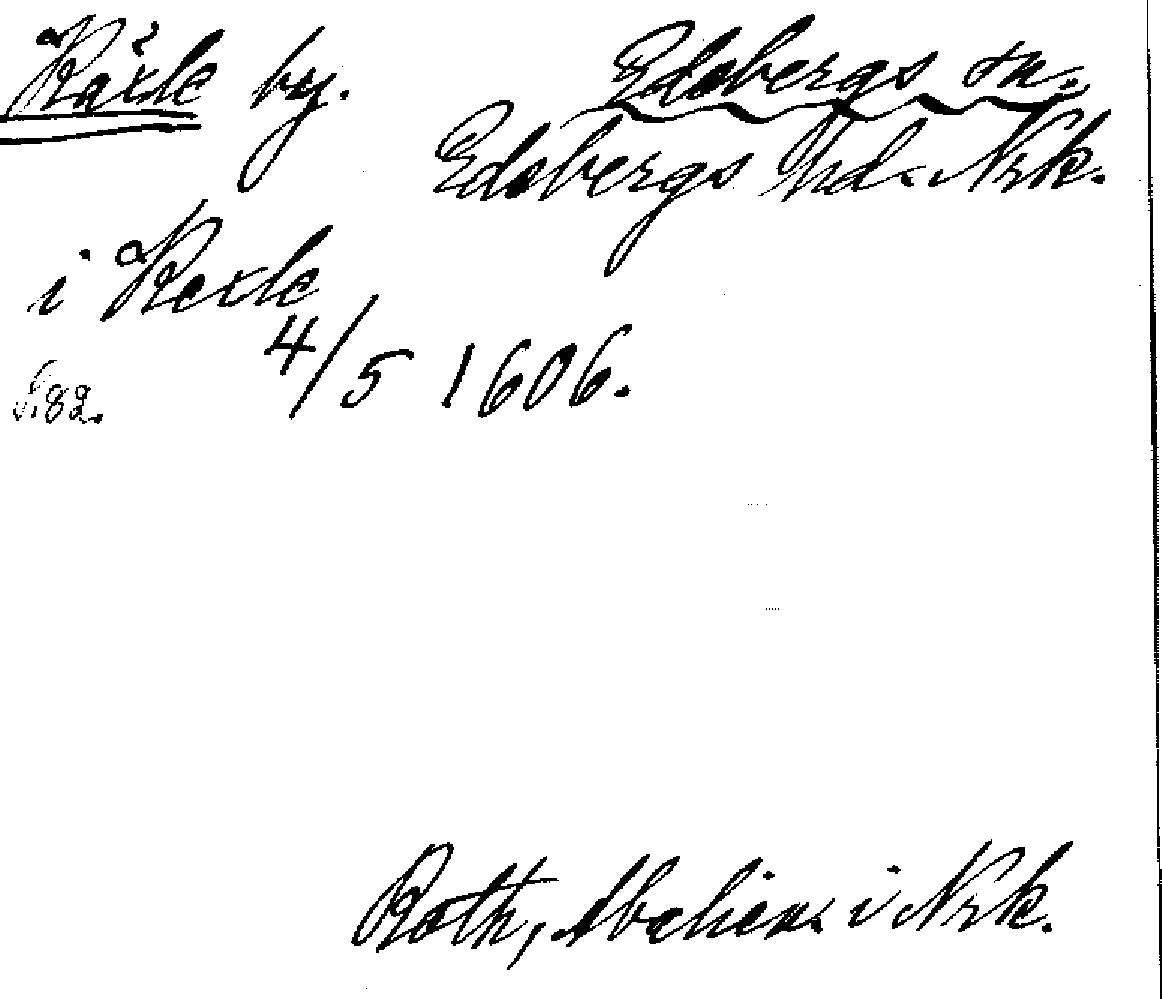 Räxle by. Edsbergs sn.
Edsbergs hd. Nrk.
i Rexle
4/5 1606.
S. 82.
Roth, Abalien. i Nrk.